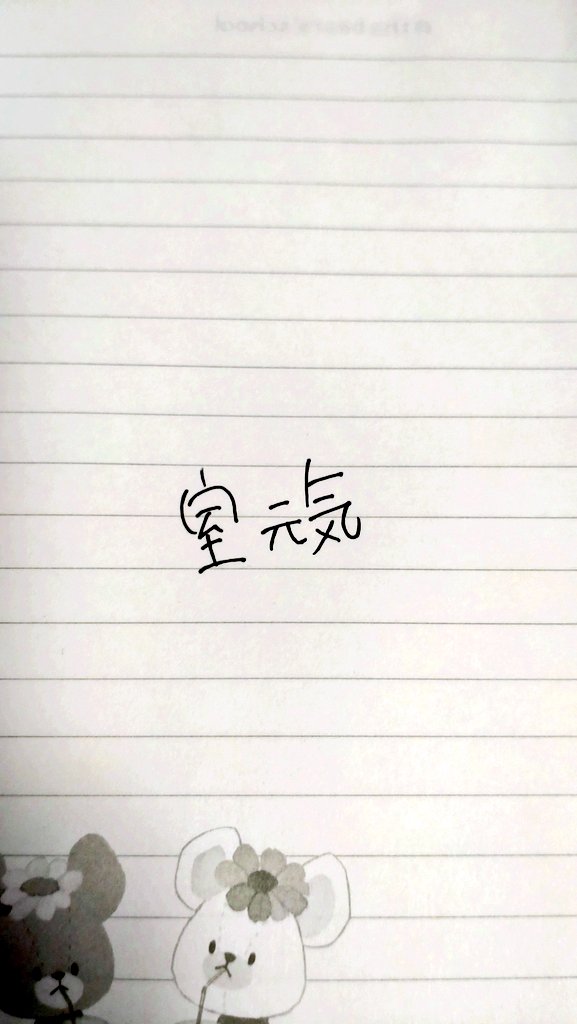 室元気